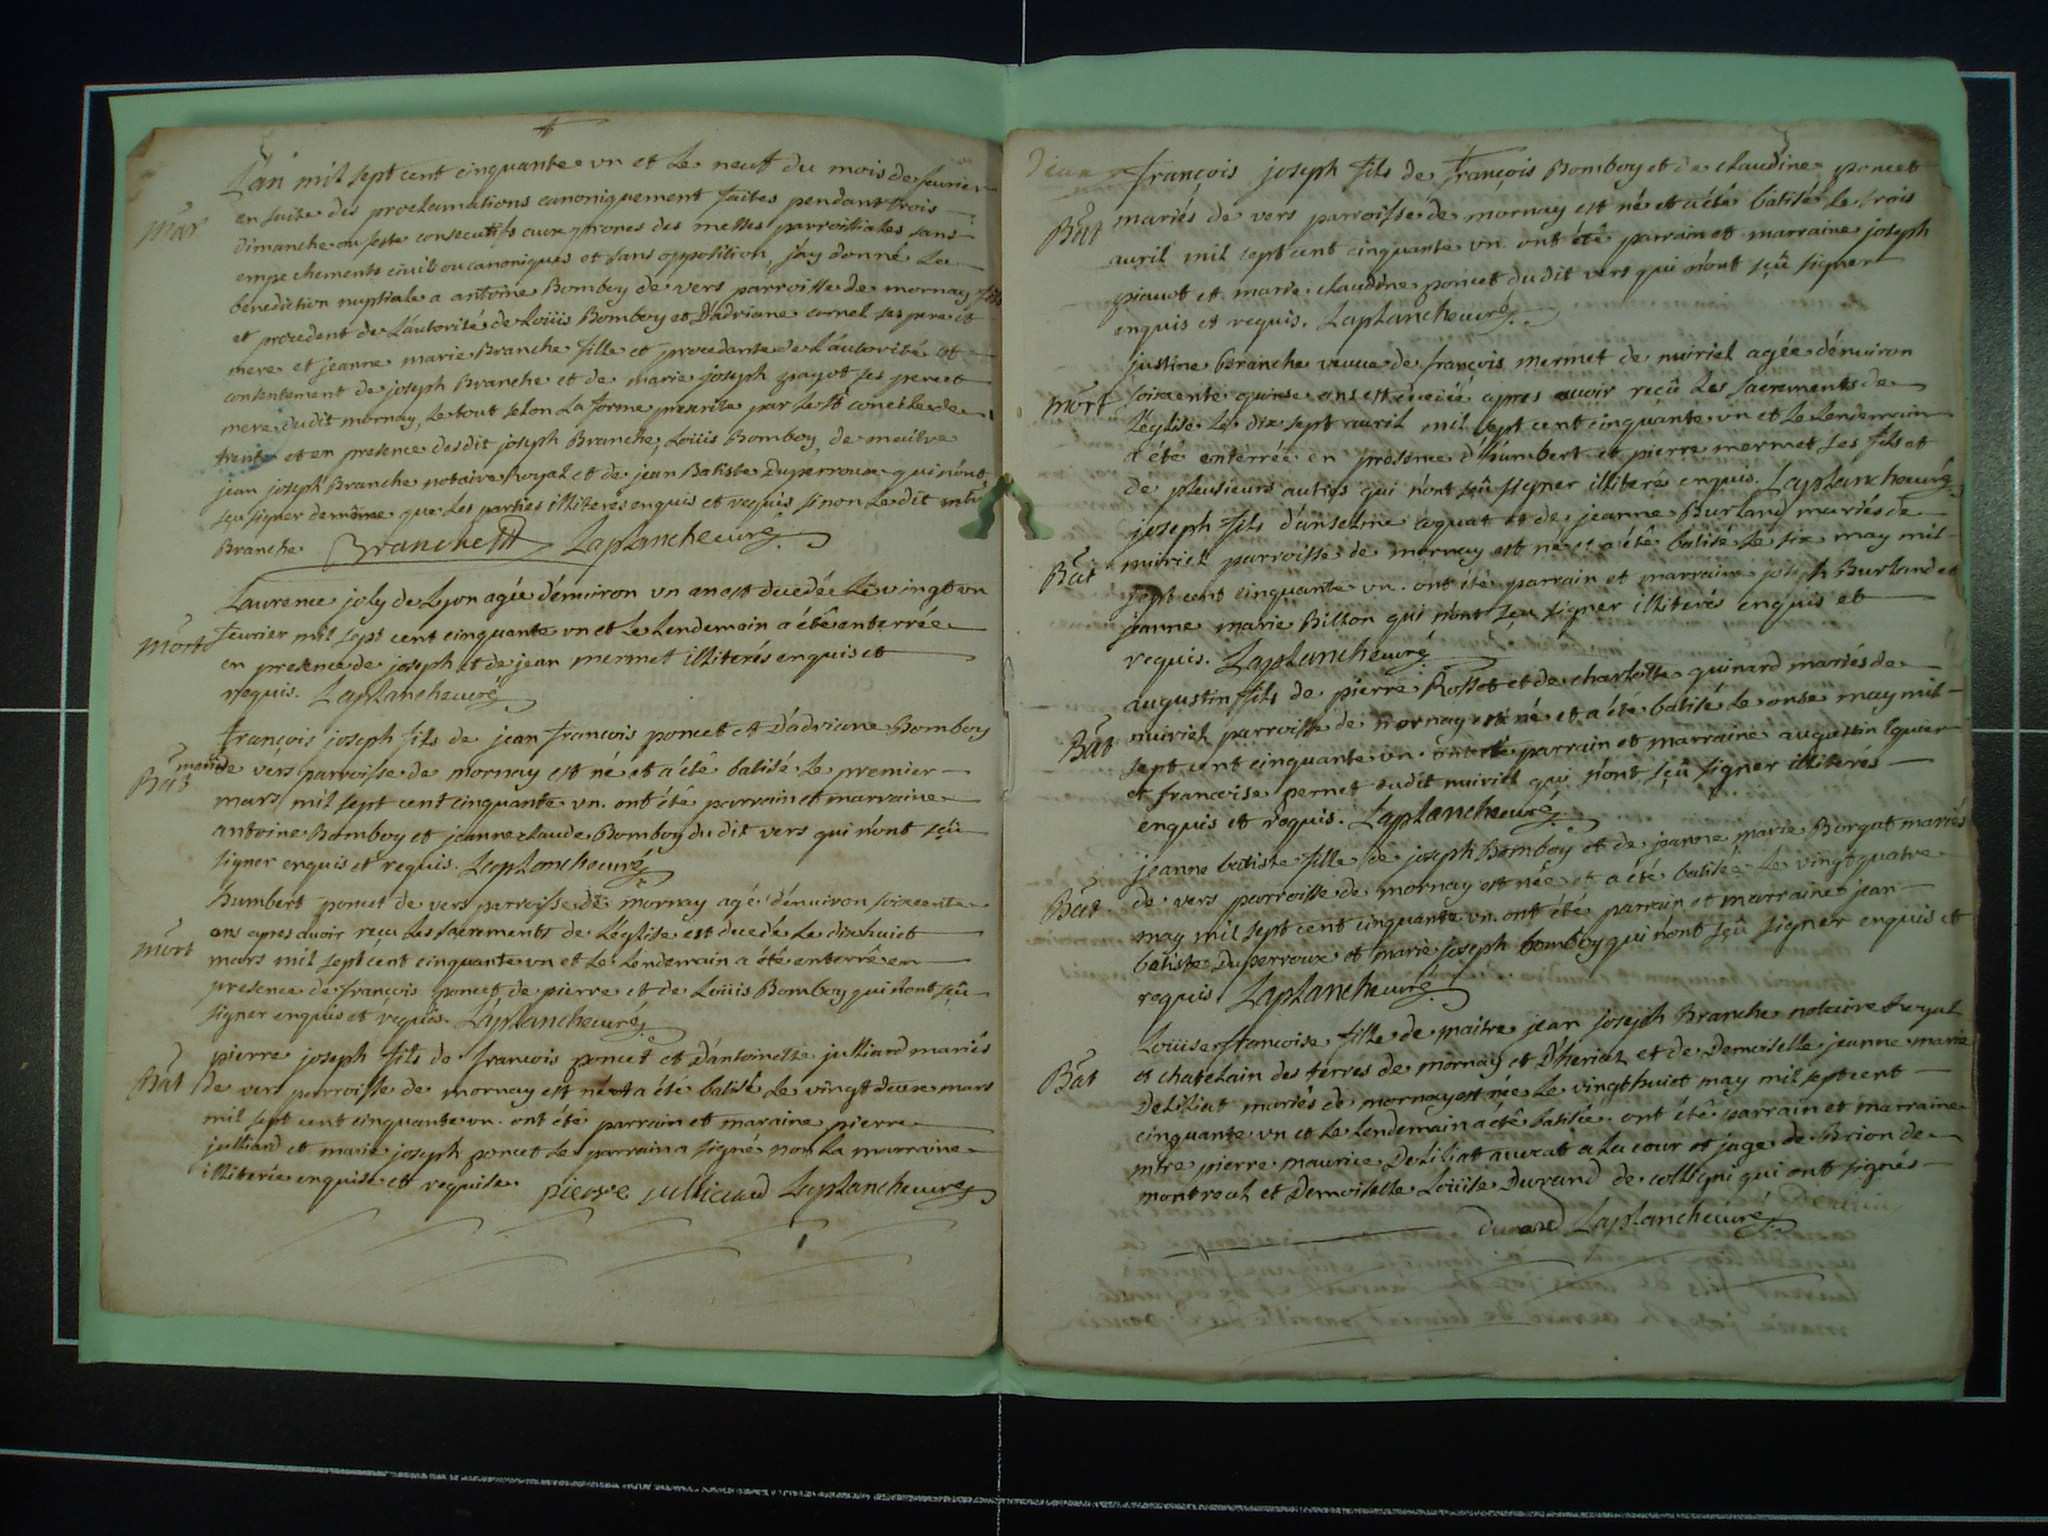 Mar
L'an mil sept cent cinquante un et le neuf du mois de fevrier
en suite des proclamations canoniquement faites pendant trois
dimanche ou feste consecutifs aux prones des messes parroissiales sans
empechements civils ou canoniques et sans opposition, j'ay donné la
benediction nuptiale a antoine Bomboy de vers parroisse de mornay fils
et procedent de l'autorité de Loüis Bomboy et D'adriane cornel ses pere et
mere et jeanne marie Branche fille et procedante de l'autorité et
consentement de joseph Branche et de marie joseph payot ses pere et
mere dudit mornay, le tout selon la forme prescrite par le St concile de
trente et en presence desdit joseph Branche, Loüis Bomboy, de
jean joseph Branche notaire royal et de jean Batiste Duperroux qui n'ont
sçu signer de même que les parties illiterés enquis et requis sinon ledit
Branche Branche Laplanche curé
Mort
Laurence joly de Lyon agée d'environ un an est decedée le vingt un
fevrier mil sept cent cinquante un et le lendemain a été enterrée
en presence de joseph et de jean mermet illiterés enquis et
requis. Laplanche curé
Bat
françois joseph fils de jean françois poncet et D'adriane Bomboy
mariés de vers parroisse de mornay est né et a été batisé le premier
mars mil sept cent cinquante un. ont été parrain et marraine
antoine Bomboy et jeanne claude Bomboy du dit vers qui n'ont sçû
signer enquis et requis. Laplanche curé
Mort
humbert poncet de vers parroisse de mornay agé d'environ soixente
ans apres avoir reçu les sacrements de L'église est decedé le dixhuict
mars mil sept cent cinquante un et le lendemain a été enterré en
presence de françois poncet de pierre et de Loüis Bomboy qui n'ont sçû
signer enquis et requis. Laplanche curé
Bat
pierre joseph fils de françois poncet et D'antoinette julliard mariés
de vers parroisse de mornay est né et a été batisé le vingt deux mars
mil sept cent cinquante un. ont été parrain et maraine pierre
julliard et marie joseph poncet le parrain a signé non la marraine
illiterée enquise et requise. pierre julliard Laplanche curé
Bat
françois joseph fils de françois Bomboy et de claudine poncet
mariés de vers parroisse de mornay est né et a été batisé le trois
avril mil sept cent cinquante un. ont été parrain et marraine joseph
piavot et marie claudine poncet dudit vers qui n'ont sçû signer
enquis et requis. Laplanche curé
Mort
justine Branche veuve de françois mermet de nuiriel agée d'environ
soixente quinse ans est decedée apres avoir reçû les sacrements de
L'église le dix sept avril mil sept cent cinquante un et le lendemain
a été enterrée en presence d'humbert et pierre mermet ses fils et
de plusieurs autres qui n'ont sçû signer illiterés enquis. Laplanche curé
Bat
joseph fils d'anselme coquat et de jeanne Burland mariés de
nuiriel parroisse de mornay est né et a été batisé le six may mil
sept cent cinquante un. ont été parrain et marraine joseph Burland et
jeanne marie Billon qui n'ont sçu signer illiterés enquis et
requis. Laplanche curé
Bat
augustin fils de pierre Rosset et de charlotte guinard mariés de
nuiriel parroisse de mornay est né et a été batisé le onse may mil
sept cent cinquante un. ont été parrain et marraine augustin
et francoise pernet dudit nuiriel qui n'ont sçû signer illiterés
enquis et requis. Laplanche curé
Bat
jeanne batiste fille de joseph Bomboy et de jeanne marie Borgat mariés
de vers parroisse de mornay est née et a été batisée le vingtquatre
may mil sept cent cinquante un. ont été parrain et marraine jean
batiste Duperroux et marie joseph bomboy qui n'ont sçû signer enquis et
requis Laplanche curé
Bat
Loüise francoise fille de maitre jean joseph Branche notaire royal
et chatelain des terres de mornay et D'heriat et de Demoiselle jeanne marie
Deliliat mariés de mornay est née le vingthuict may mil sept cent
cinquante un et le lendemain a été batisée. ont été parrain et marraine
mtre pierre maurice Deliliat avocat a la cour et juge de Brion de
montreal et Demoiselle Loüise Durand de colligni qui ont signés
durand Laplanche curé